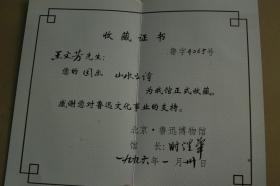 收藏证书
鲁字4065号
王文芳先生：
您的国画 山水之诗
为我馆正式收藏。
感谢您对鲁迅文化事业的支持。
北京·鲁迅博物馆
馆 长：
一九九六年一月卅日